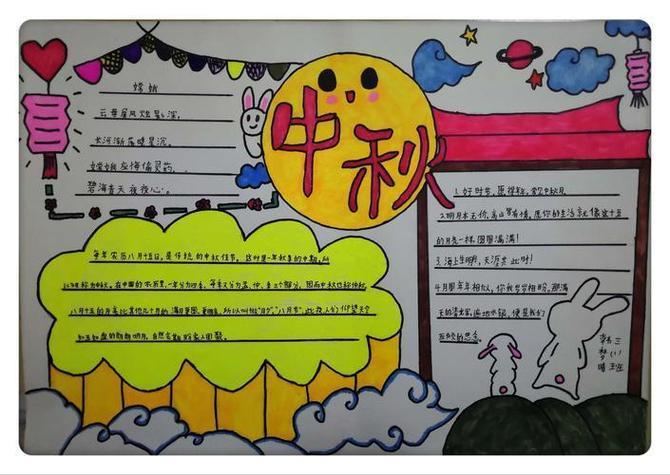 中秋
嫦娥
云母屏风烛影深,
长河渐落晓星沉。
嫦娥应悔偷灵药,
碧海青天夜夜心。
每年农历八月十五日,是传统的中秋佳节。这时是一年秋季的中期,所
以被称为中秋。在中国的农历里,一年分为四季,每季又分为孟、仲、季三个部分,因而中秋也称仲秋。
八月十五的月亮比其他几个月的满月更圆,更明亮,所以又叫做"月夕","八月节"。此夜,人们仰望天空
如玉如盘的朗朗明月,自然会期盼家人团聚。
1.好时节,愿得年年,常见中秋月。
2.明月本无价,高山皆有情。愿你的生活就像这十五
的月亮一样,圆圆满满!
3.海上生明月,天涯共此时!
4.月圆年年相似,你我岁岁相盼。那满
天的清辉,遍地水银,便是我们
互倾的思念。
三
(1)
班